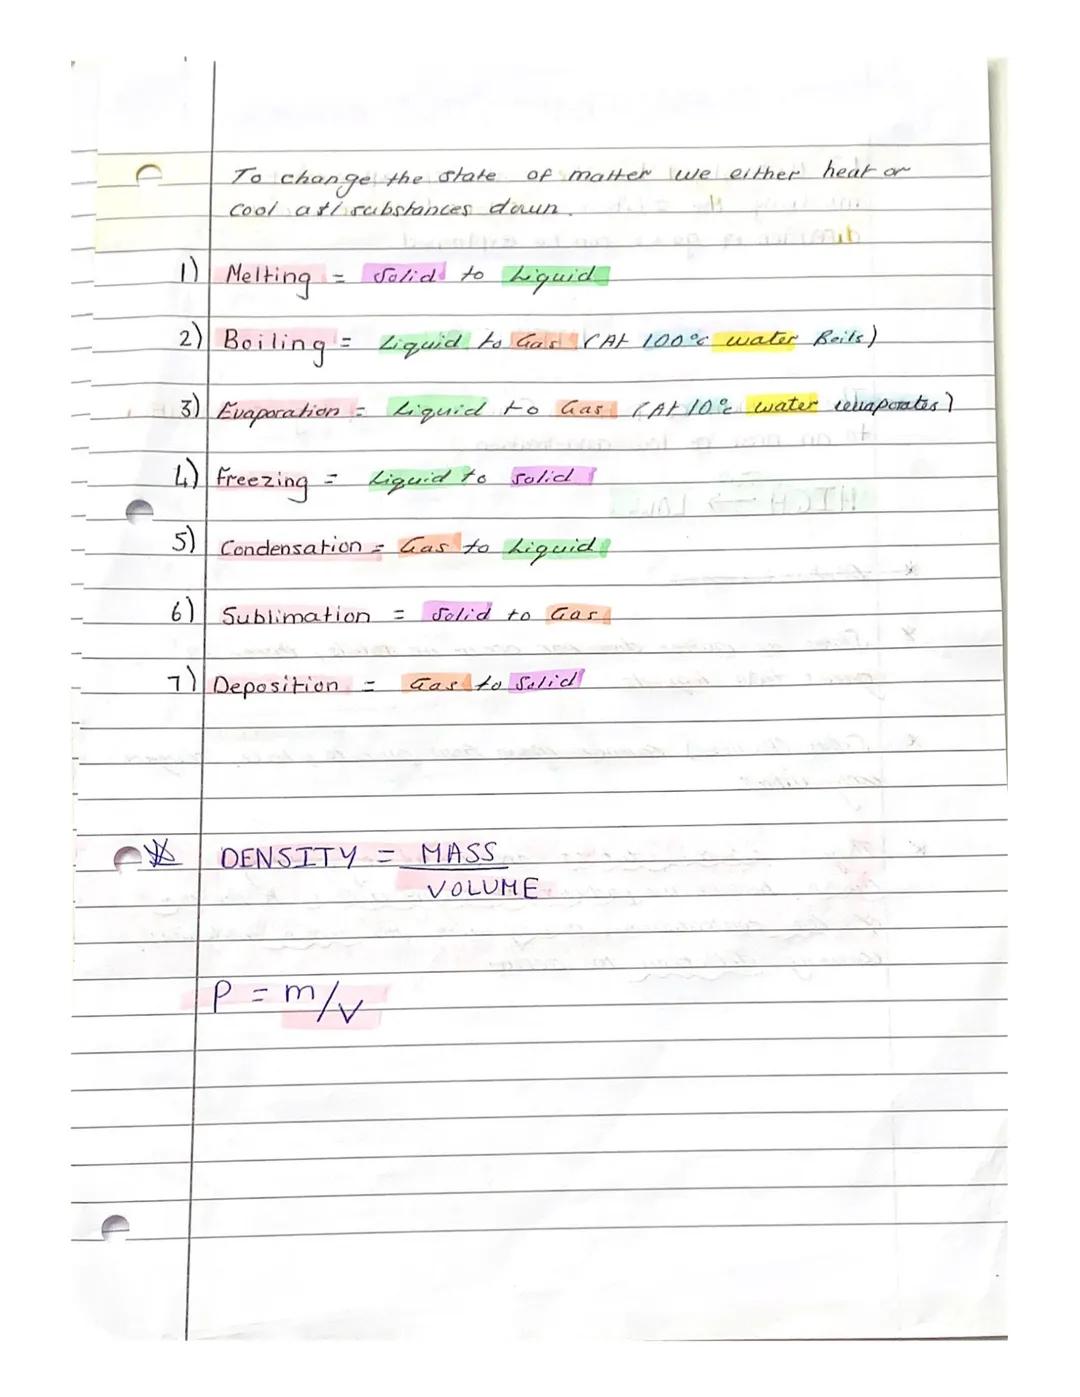 To change the state of matter we either heat or
cool substances down.
1) Melting = Solid to Liquid
2) Boiling = Liquid to Gas (At 100°c water Boils)
3) Evaporation = Liquid to Gas (At 10°c water evaporates)
4) Freezing = Liquid to Solid
5) Condensation = Gas to Liquid
6) Sublimation = Solid to Gas
7) Deposition = Gas to Solid
DENSITY = MASS
VOLUME
P = m/v